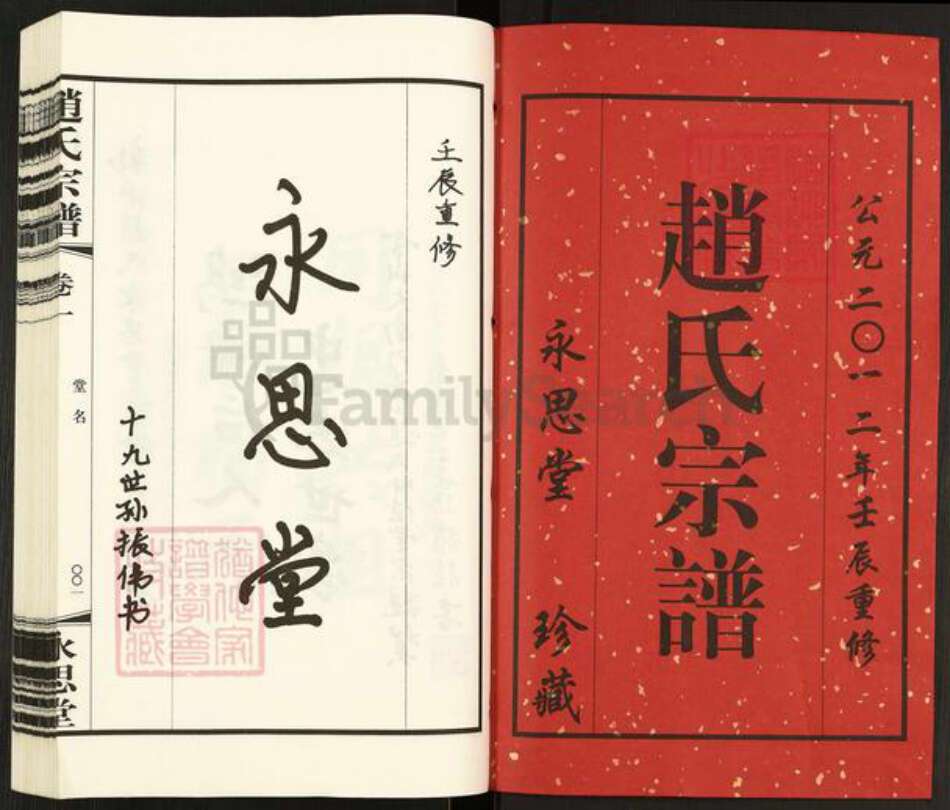 公元二〇一二年壬辰重修
趙氏宗譜
永思堂 珍藏
壬辰重修
永思堂
十九世孙振伟书
趙氏宗譜
卷一
堂名
〇〇一
永思堂
FamilySearch